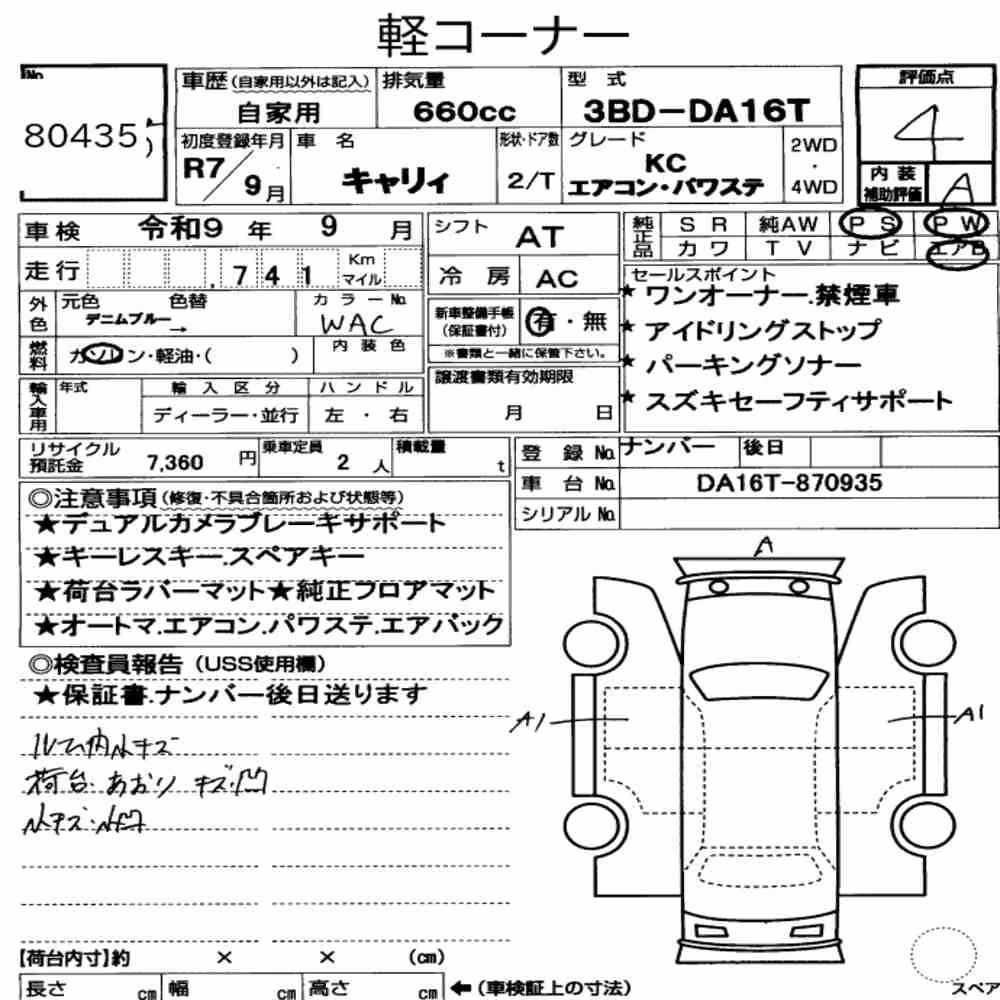 軽コーナー
No.
80435
車歴(自家用以外は記入)
自家用
排気量
660cc
型 式
3BD-DA16T
評価点
4
内装
補助評価
A
初度登録年月
R7/9月
車 名
キャリィ
形状・ドア数
2/T
グレード
KC
エアコン・パワステ
2WD
・
4WD
車検 令和9年 9月
走行 741 Km マイル
外色
元色 色替
デニムブルー→
カラーNo.
WAC
燃料
ガソリン・軽油・( )
内装色
輸入車用
年式
輸入区分
ディーラー・並行
ハンドル
左・右
シフト
AT
冷房
AC
新車整備手帳
(保証書付)
有・無
※書類と一緒に保管下さい。
譲渡書類有効期限
月 日
純正品
SR 純AW PS PW
カワ TV ナビ エアB
セールスポイント
★ワンオーナー.禁煙車
★アイドリングストップ
★パーキングソナー
★スズキセーフティサポート
リサイクル
預託金
7,360円
乗車定員
2人
積載量
t
登録No. ナンバー 後日
車台No. DA16T-870935
シリアルNo.
◎注意事項(修復・不具合箇所および状態等)
★デュアルカメラブレーキサポート
★キーレスキー.スペアキー
★荷台ラバーマット★純正フロアマット
★オートマ.エアコン.パワステ.エアバック
◎検査員報告(USS使用欄)
★保証書.ナンバー後日送ります
ルーム内小キズ
荷台.あおり キズ・凹
小キズ・小凹
A
A1
A1
【荷台内寸】約 × × (cm)
長さ cm 幅 cm 高さ cm ←(車検証上の寸法)
スペア